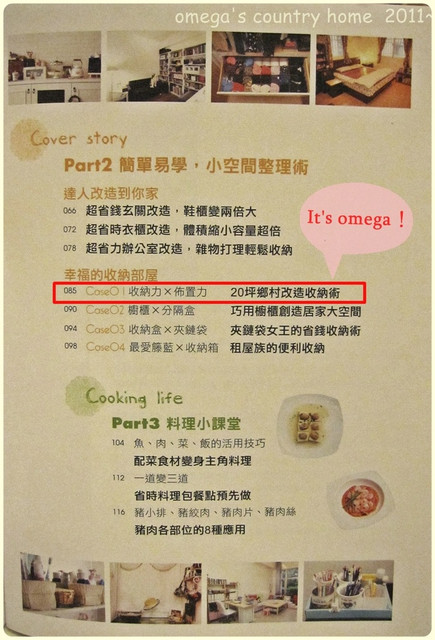 omega's country home 2011~
Cover story
Part2 簡單易學，小空間整理術
達人改造到你家
066 超省錢玄關改造，鞋櫃變兩倍大
072 超省時衣櫃改造，體積縮小容量超倍
078 超省力辦公室改造，雜物打理輕鬆收納
It's omega！
幸福的收納部屋
085 Case01 收納力×佈置力 20坪鄉村改造收納術
090 Case02 櫥櫃×分隔盒 巧用櫥櫃創造居家大空間
094 Case03 收納盒×夾鏈袋 夾鏈袋女王的省錢收納術
098 Case04 最愛藤籃×收納箱 租屋族的便利收納
Cooking life
Part3 料理小課堂
104 魚、肉、菜、飯的活用技巧
配菜食材變身主角料理
112 一道變三道
省時料理包餐點預先做
116 豬小排、豬絞肉、豬肉片、豬肉絲
豬肉各部位的8種應用